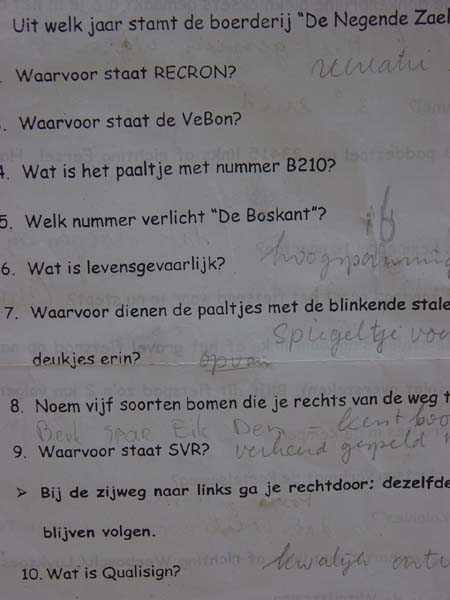 Uit welk jaar stamt de boerderij "De Negende Zael
Waarvoor staat RECRON? recreati
Waarvoor staat de VeBon?
4. Wat is het paaltje met nummer B210?
5. Welk nummer verlicht "De Boskant"? 16
6. Wat is levensgevaarlijk? hoogspanning
7. Waarvoor dienen de paaltjes met de blinkende stale
Spiegeltje voo
deukjes erin? opvan
8. Noem vijf soorten bomen die je rechts van de weg t
Berk Spar Eik Den - 
9. Waarvoor staat SVR?
➤ Bij de zijweg naar links ga je rechtdoor: dezelfde
blijven volgen.
10. Wat is Qualisign? kwalijk